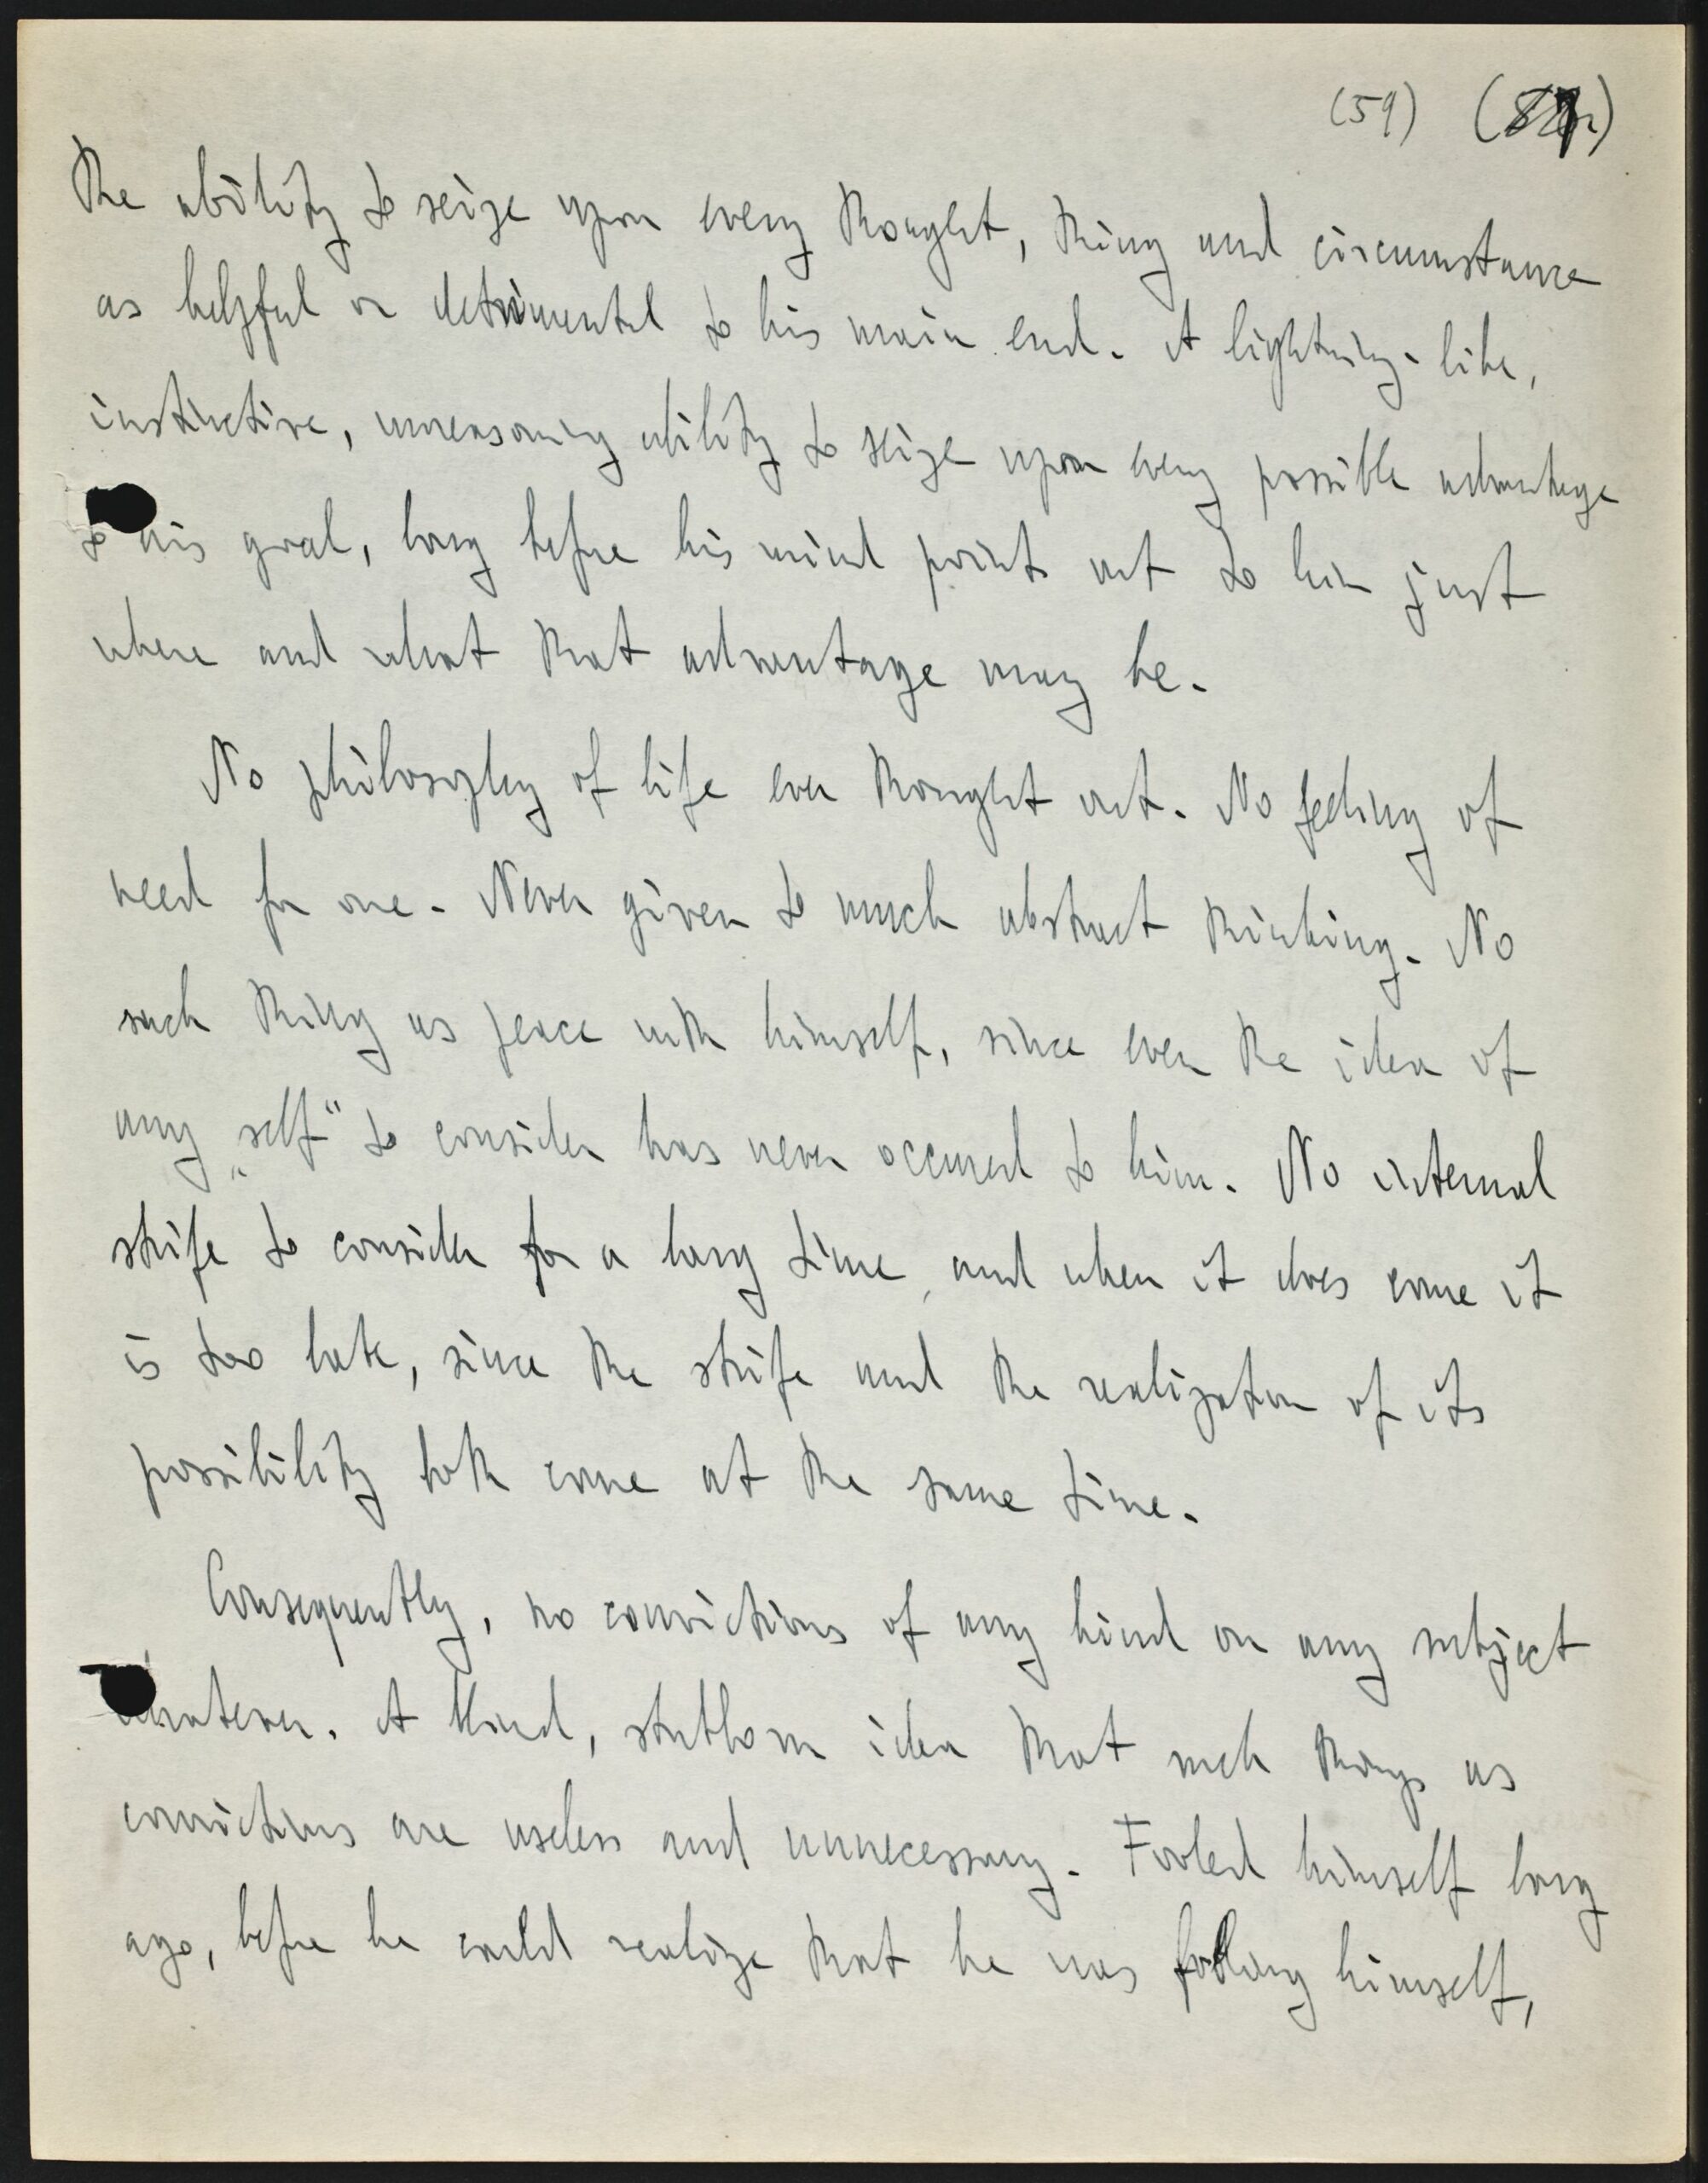 (59)
The ability to seize upon every thought, thing and circumstance
as helpful or detrimental to his main end. A lightning-like,
instinctive, unreasoning ability to seize upon every possible advantage
to his goal, long before his mind points out to him just
where and what that advantage may be.
No philosophy of life ever thought out. No feeling of
need for one. Never given to much abstract thinking. No
such thing as peace with himself, since even the idea of
any „self“ to consider has never occured to him. No internal
strife to consider for a long time, and when it does come it
is too late, since the strife and the realization of its
possibility both come at the same time.
Consequently, no convictions of any kind on any subject
whatever. A blind, stubborn idea that such things as
convictions are useless and unnecessary. Fooled himself long
ago, before he could realize that he was fooling himself,